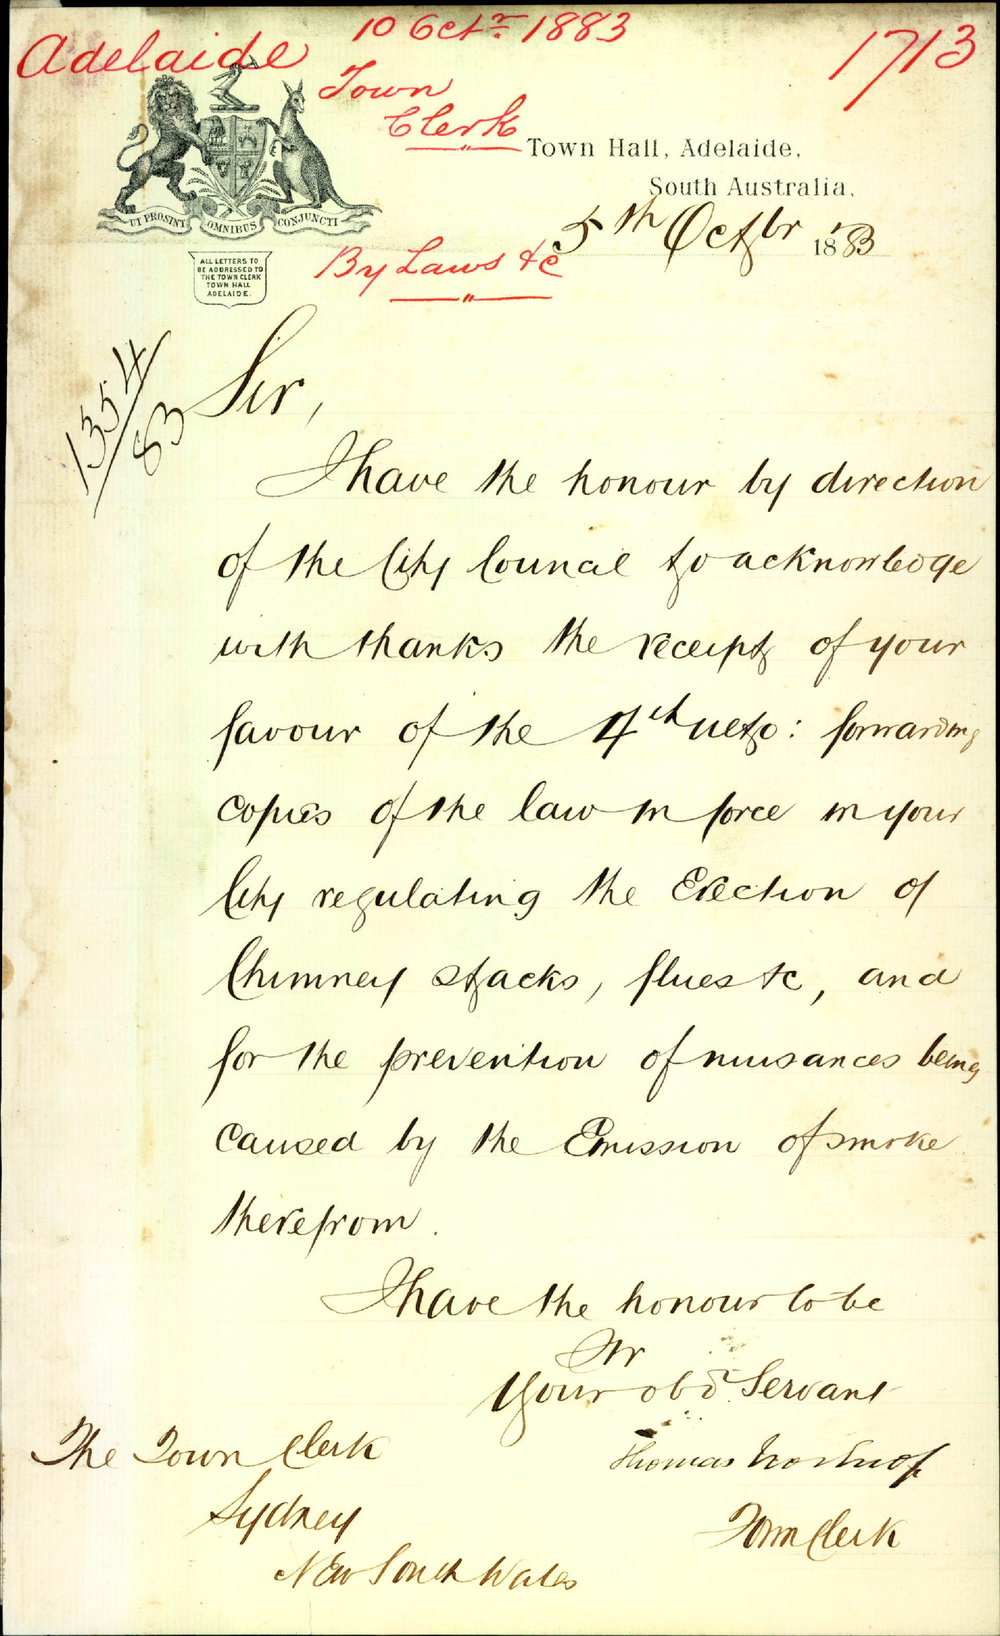 10 Octr 1883
Adelaide
1713
Town
Clerk
Town Hall, Adelaide,
South Australia,
UT PROSINT OMNIBUS CONJUNCTI
5th Octbr 1883
ALL LETTERS TO
BE ADDRESSED TO
THE TOWN CLERK
TOWN HALL
ADELAIDE.
By Laws &c
1354/83
Sir,
I have the honour by direction
of the City Council to acknowledge
with thanks the receipt of your
favour of the 4th ulto: forwarding
copies of the law in force in your
City regulating the Erection of
Chimney stacks, flues &c, and
for the prevention of nuisances being
caused by the Emission of smoke
therefrom.
I have the honour to be
Sir
Your obd. Servant
Thomas Worsnop
Town Clerk
The Town Clerk
Sydney
New South Wales